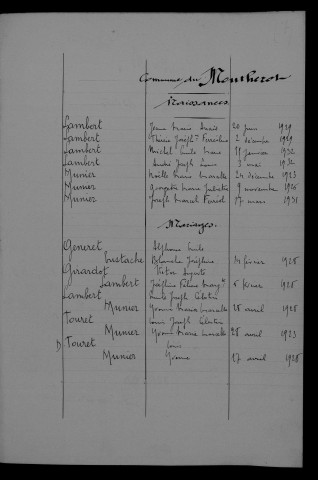 Commune du Montherot
Naissances
Lambert Jeune Marie Anaïs 20 juin 1929
Lambert Thérèse Joseph Ferréoline 2 décembre 1929
Lambert Michel Emile Marie 15 janvier 1932
Lambert André Joseph Louis 3 mai 1932
Munier Noëlle Marie Marcelle 24 décembre 1923
Munier Georgette Marie Juliette 9 novembre 1926
Munier Joseph Marcel Ferréol 17 mars 1931
Mariages
Generet Alphonse Emile
Eustache Blanche Joséphine 14 février 1928
Girardot Victor Auguste
Lambert Joséphine 6 février 1928
Lambert Emile Joseph Célestin
Munier Yvonne Marie Marcelle 28 avril 1928
Touret Louis Joseph Célestin
Munier Yvonne Marie Marcelle 28 avril 1923
D Touret Louis
Munier Yvonne 17 avril 1928